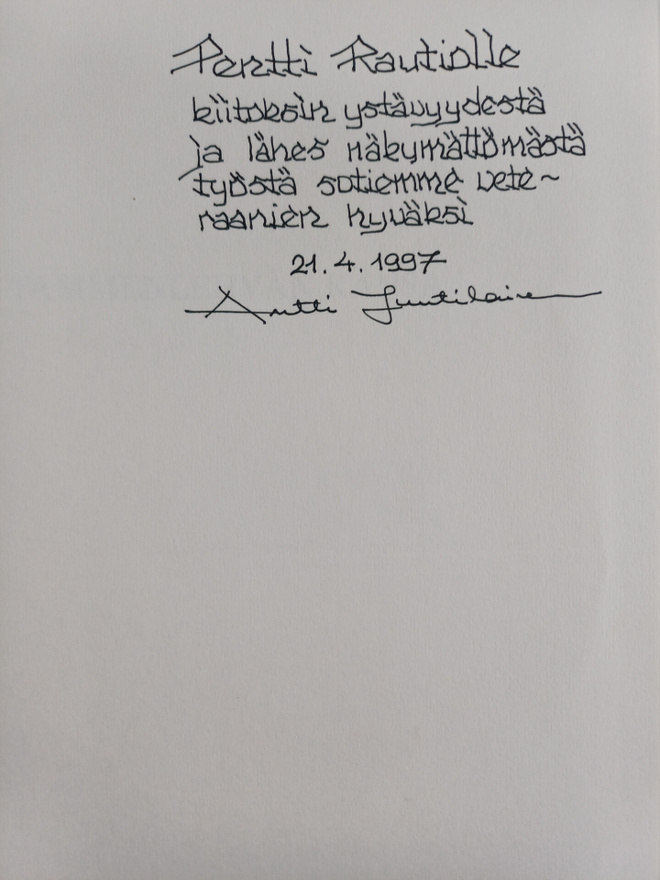 Pentti Rautiolle
kiitoksin ystävyydestä
ja lähes näkymättömästä
työstä sotiemme vete~
raanien hyväksi
21.4.1997
Antti Juutilainen